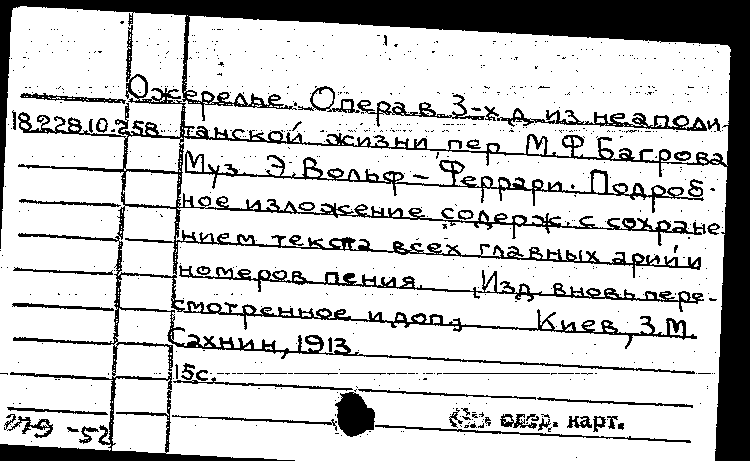 Ожерелье. Опера в 3-х д. из неаполи
18.228.10.258 танской жизни, пер. М.Ф. Багрова
Муз. Э. Вольф-Феррари. Подроб-
ное изложение содерж. с сохране
нием текста всех главных арий и
номеров пения. [Изд. вновь пере-
смотренное и доп.] Киев, З.М.
Сахнин, 1913.
15с.
См. след. карт.
-52